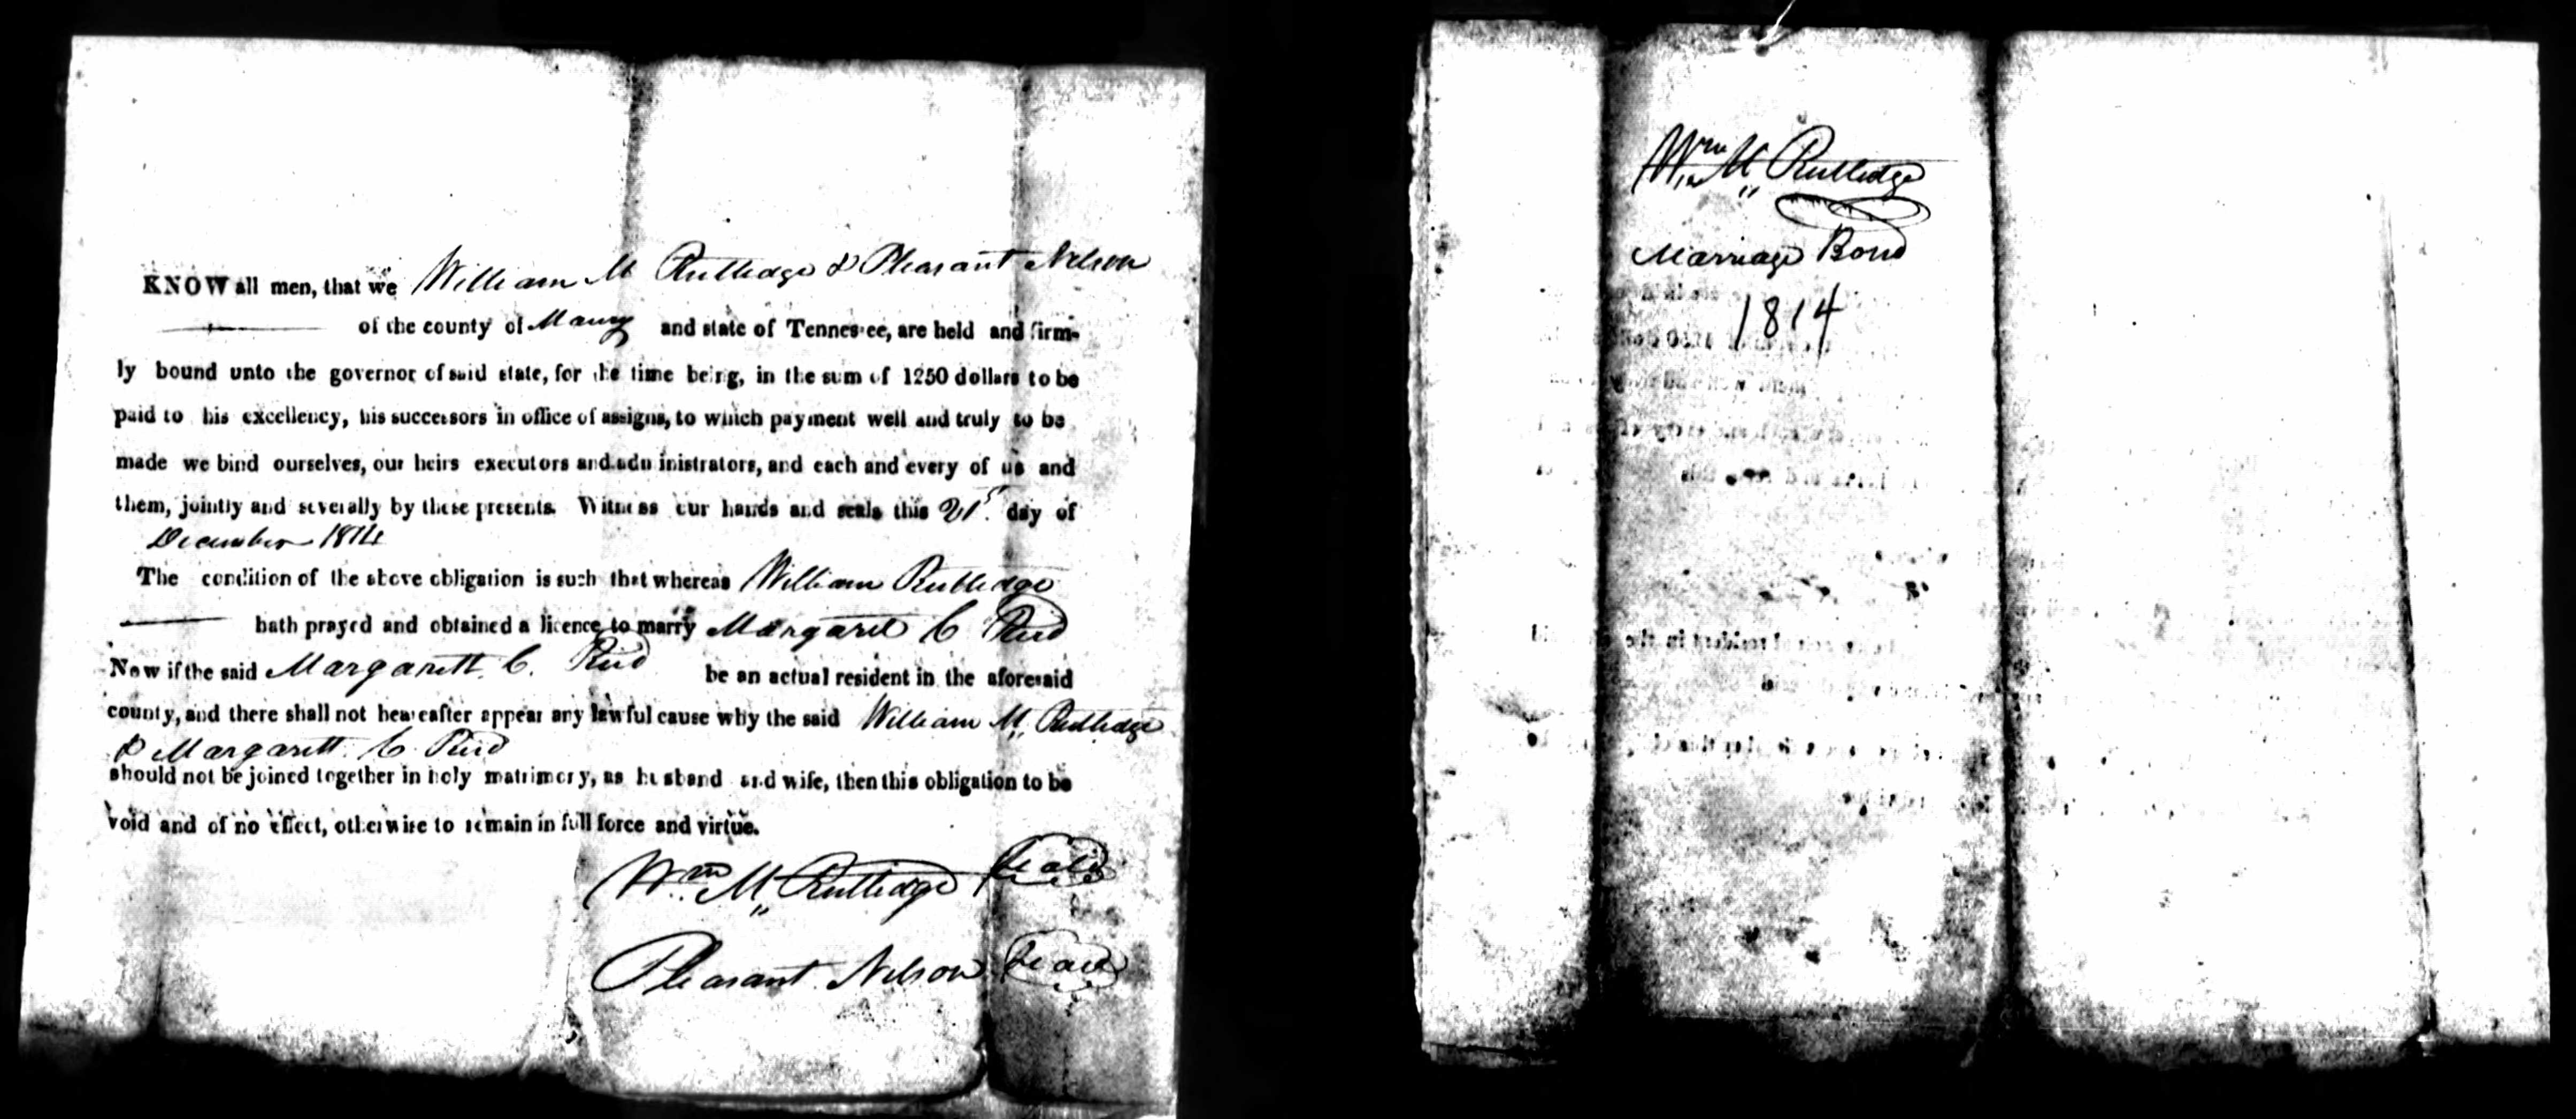 KNOW all men, that we William M Rutledge & Pleasant Nelson
of the county of Maury and state of Tennessee, are held and firm-
ly bound unto the governor of said state, for the time being, in the sum of 1250 dollars to be
paid to his excellency, his successors in office of assigns, to which payment well and truly to be
made we bind ourselves, our heirs executors and administrators, and each and every of us and
them, jointly and severally by these presents. Witness our hands and seals this 21st. day of
December 1814
The condition of the above obligation is such that whereas William Rutledge
hath prayed and obtained a licence to marry Margaret C Reid
Now if the said Margarett. C. Reid be an actual resident in the aforesaid
county, and there shall not hereafter appear any lawful cause why the said William M,, Rutledge
& Margarett. C. Reid
should not be joined together in holy matrimory, as husband and wife, then this obligation to be
void and of no effect, otherwise to remain in full force and virtue.
Wm. M,, Rutledge Seal
Pleasant. Nelson Seal
Wm M,, Rutledge
Marriage Bond
1814